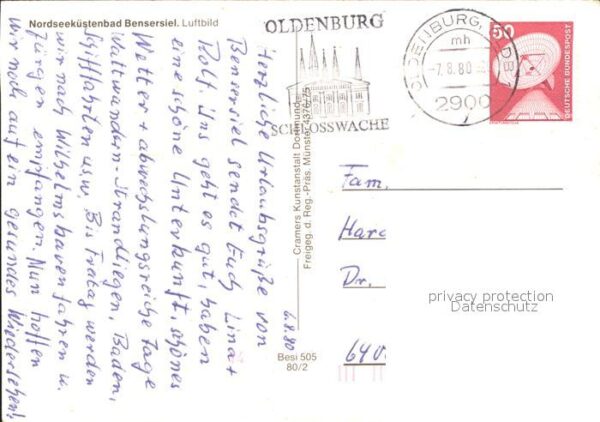 Nordseeküstenbad Bensersiel. Luftbild
Herzliche Urlaubsgrüße von
Bensersiel sendet Euch Lina +
Rolf. Uns geht es gut, haben
eine schöne Unterkunft, schönes
Wetter + abwechslungsreiche Tage
Wattwandern - Strandliegen, Baden,
Schiffahrten usw. Bis Freitag werden
wir nach Wilhelmshaven fahren u.
Jürgen empfangen. Nun hoffen
wir noch auf ein gesundes Wiedersehen!
6.8.80
Cramers Kunstanstalt Dortmund
Freigeg. d. Reg.-Präs. Münster 4376/75
Besi 505
80/2
OLDENBURG
SCHLOSSWACHE
OLDENBURG, OLDB
mh
-7.8.80
2900
50
DEUTSCHE BUNDESPOST
Fam.
Hara
Dr.
640
privacy protection
Datenschutz